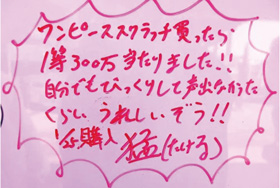 ワンピーススクラッチ買ったら
1等300万当たりました!!
自分でもびっくりして声出なかった
くらいうれしいぞう!!
1/25購入 猛(たける)